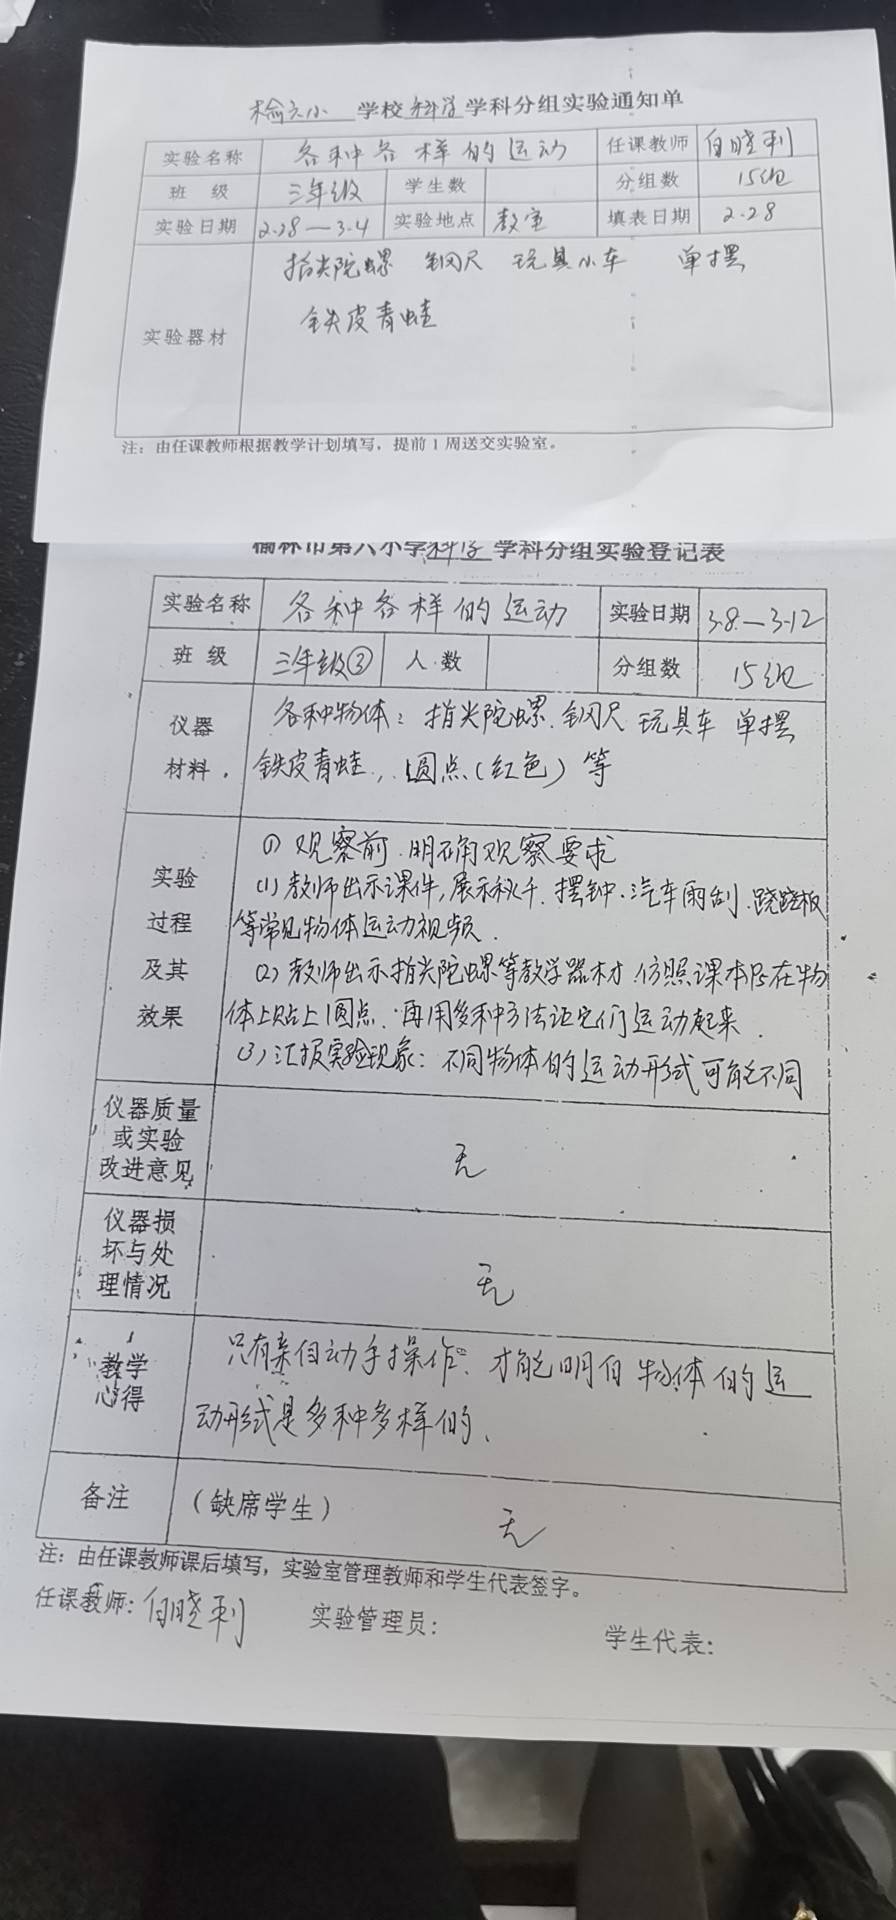 榆六小 学校 科学 学科分组实验通知单
实验名称 各种各样的运动 任课教师 白晓利
班 级 三年级 学生数 分组数 15组
实验日期 2.28—3.4 实验地点 教室 填表日期 2.28
实验器材
指尖陀螺 钢尺 玩具小车 单摆
铁皮青蛙
注：由任课教师根据教学计划填写，提前1周送交实验室。
榆林市第六小学 科学 学科分组实验登记表
实验名称 各种各样的运动 实验日期 3.8—3.12
班 级 三年级③ 人 数 分组数 15组
仪器
材料
各种物体：指尖陀螺、钢尺 玩具车 单摆
铁皮青蛙，圆点（红色）等
实验
过程
及其
效果
① 观察前 明确观察要求
(1) 教师出示课件，展示秋千、摆钟、汽车雨刮、跷跷板
等常见物体运动视频。
(2) 教师出示指尖陀螺等教学器材 仿照课本P5在物
体上贴上圆点，再用多种方法让它们运动起来。
(3) 汇报实验现象：不同物体的运动形式可能不同
仪器质量
或实验
改进意见
无
仪器损
坏与处
理情况
无
教学
心得
只有亲自动手操作，才能明白物体的运
动形式是多种多样的、
备注 （缺席学生） 无
注：由任课教师课后填写，实验室管理教师和学生代表签字。
任课教师：白晓利 实验管理员： 学生代表：